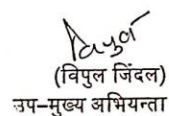 (विपुल जिंदल)
उप–मुख्य अभियन्ता